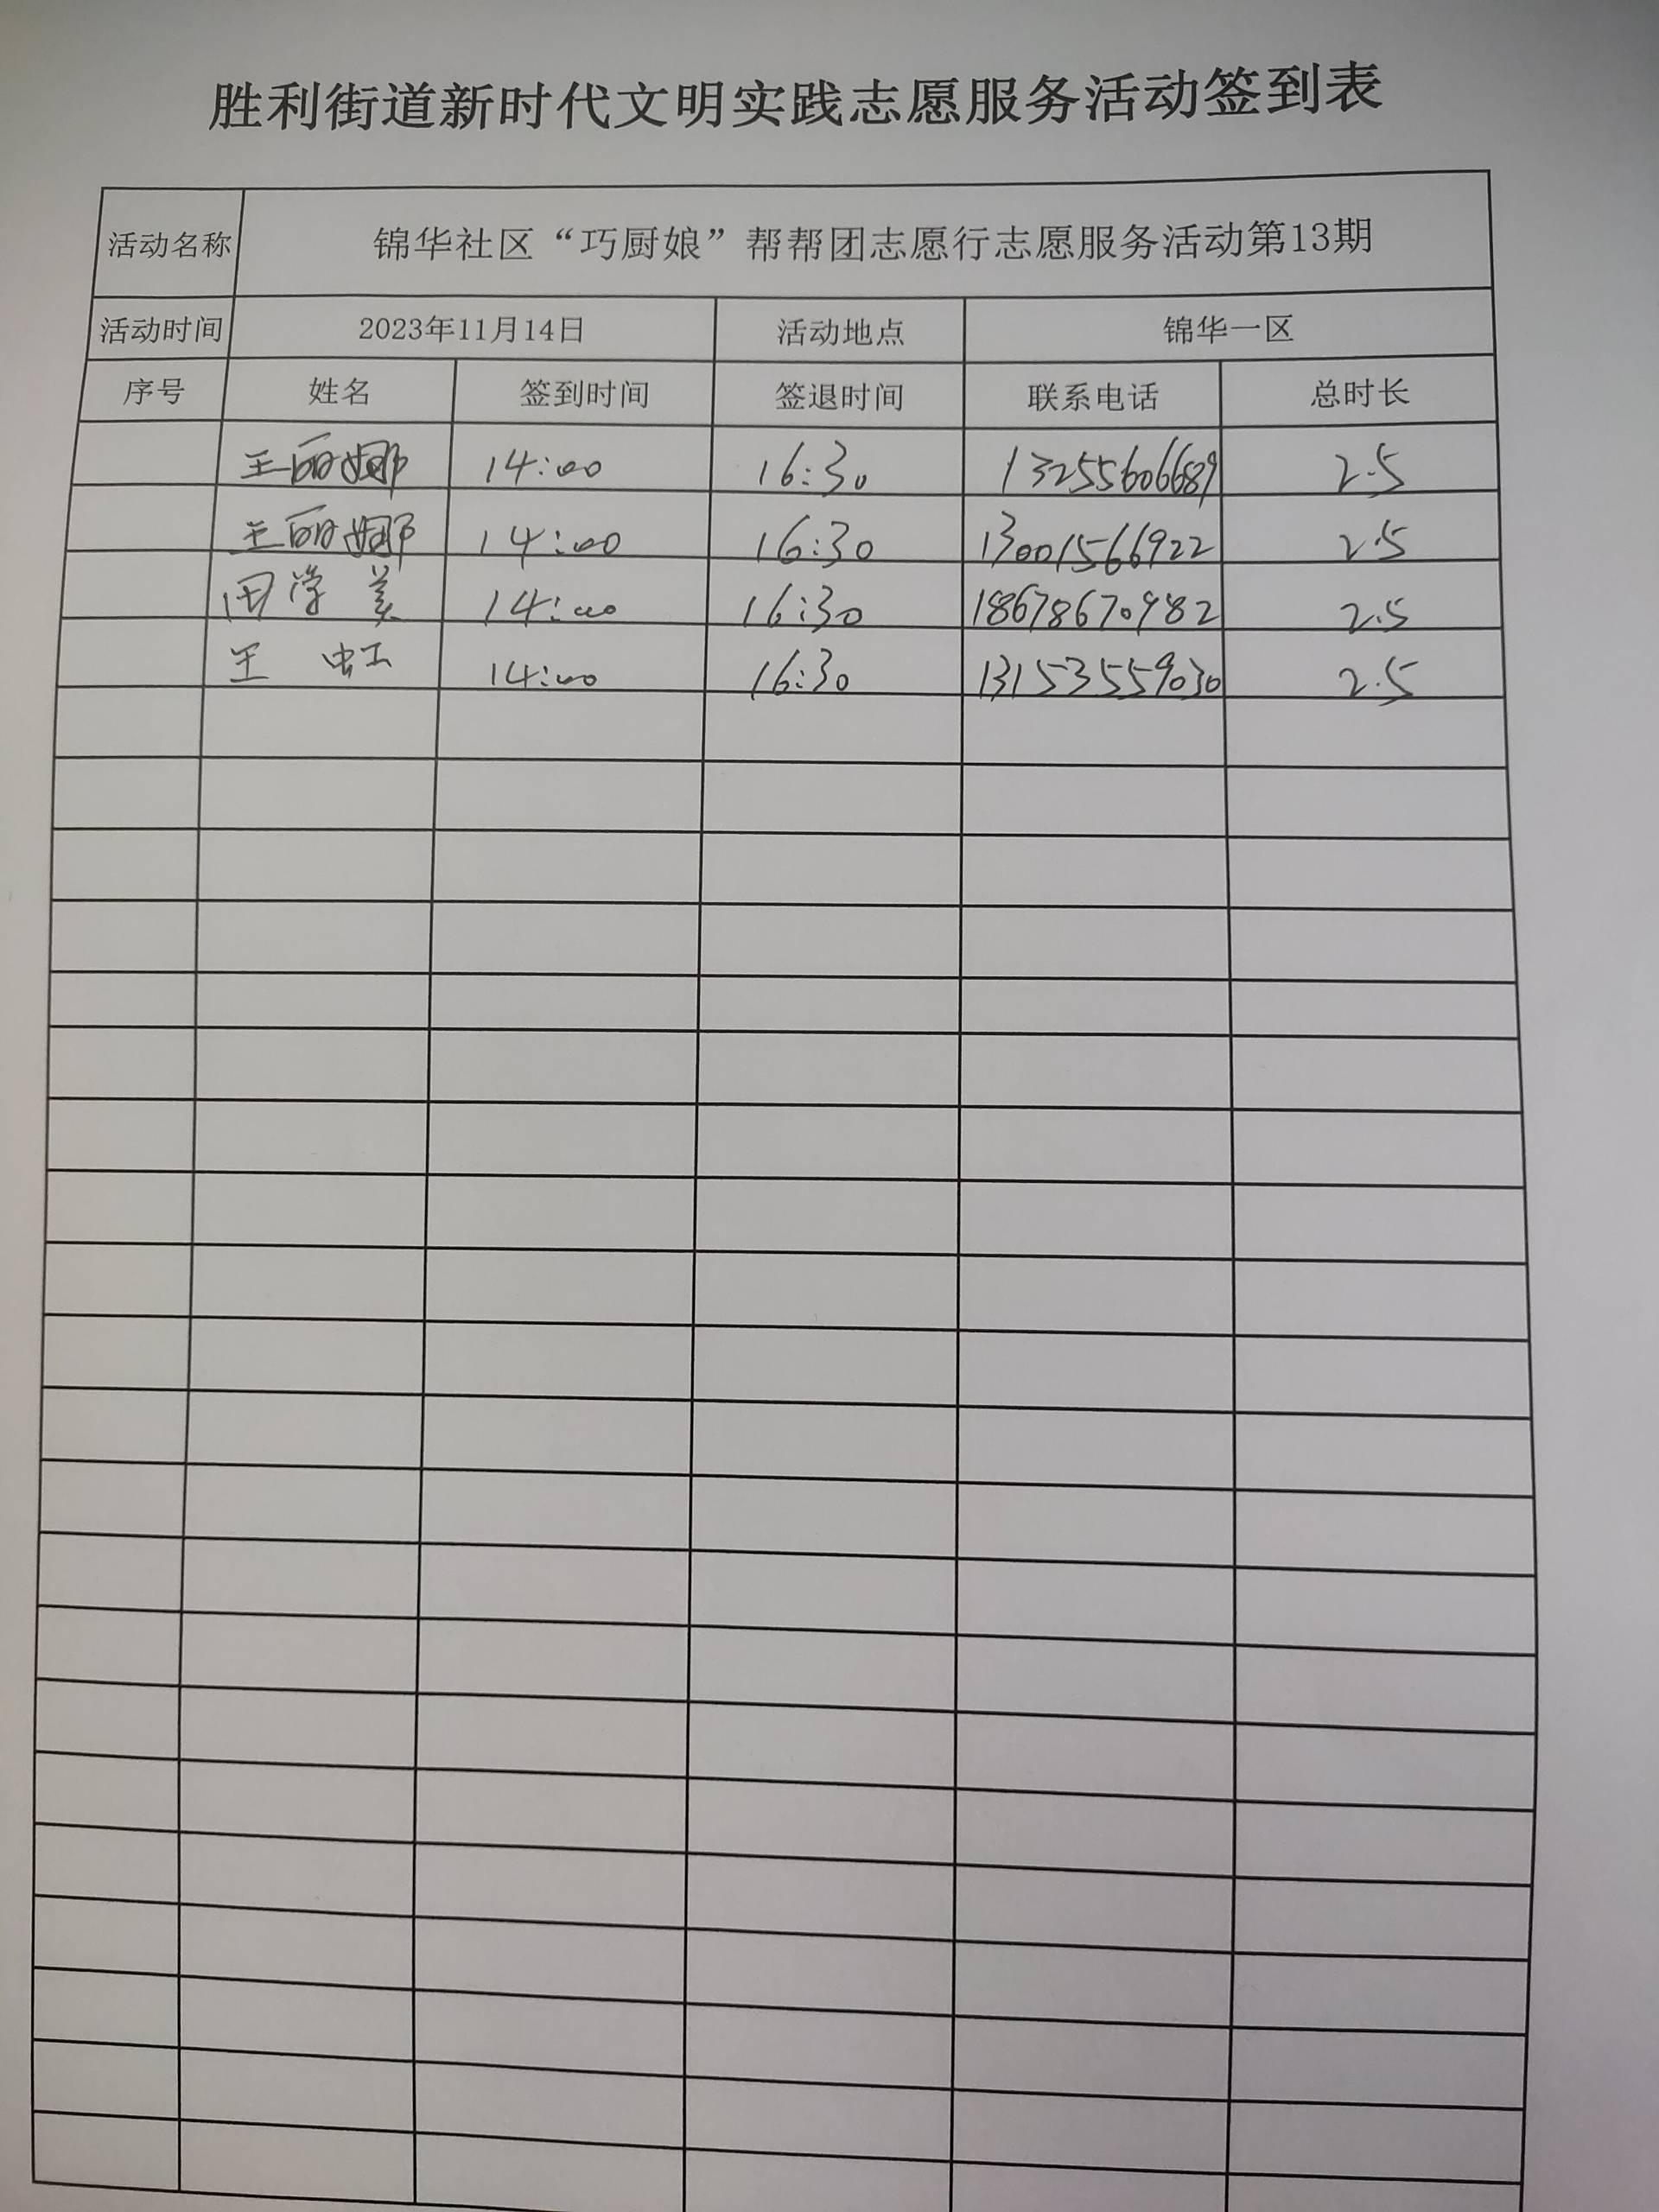 胜利街道新时代文明实践志愿服务活动签到表
活动名称 锦华社区“巧厨娘”帮帮团志愿行志愿服务活动第13期
活动时间 2023年11月14日 活动地点 锦华一区
序号 姓名 签到时间 签退时间 联系电话 总时长
王丽娜 14:00 16:30 13255606689 2.5
王丽娜 14:00 16:30 13001566922 2.5
田学美 14:00 16:30 18678670982 2.5
王虹 14:00 16:30 13153559030 2.5